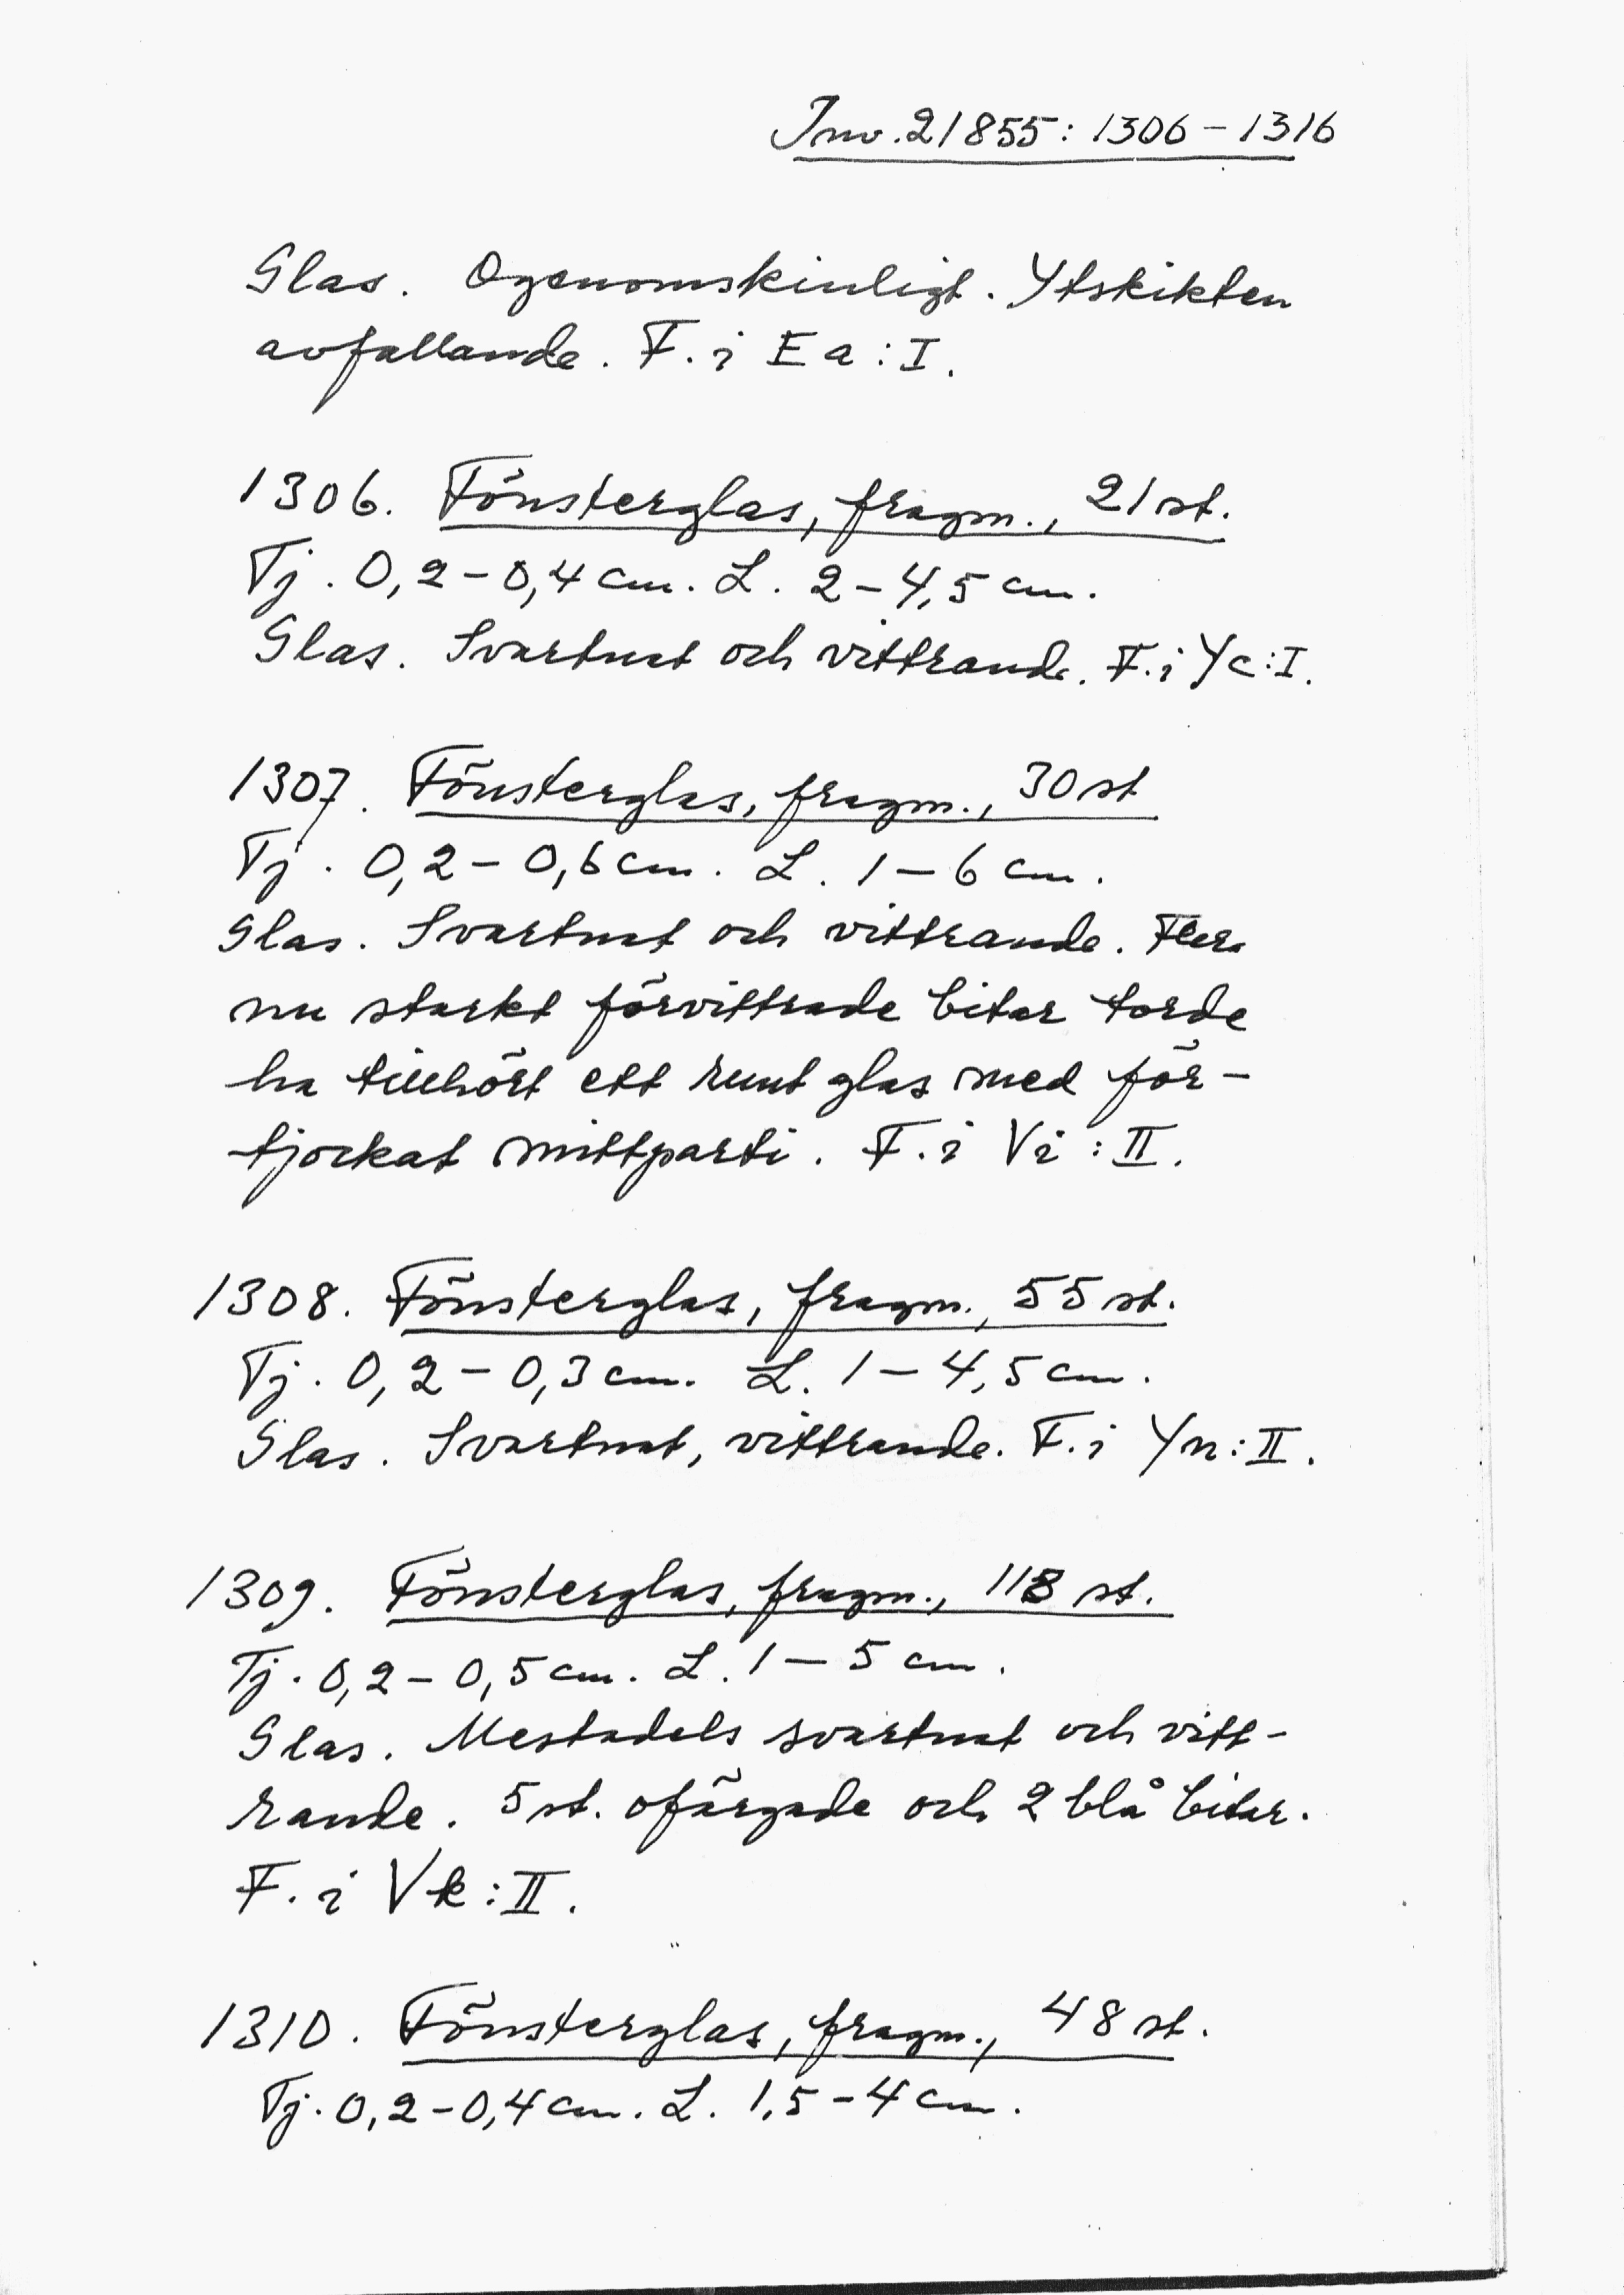 Inv. 21855: 1306 – 1316
Glas. Ogenomskinligt. Ytskikten
avfallande. F. i E a : I.
1306. Fönsterglas, fragm., 21 st.
Tj. 0,2 – 0,4 cm. L. 2 – 4,5 cm.
Glas. Svartnat och vittrande. F. i Y c : I.
1307. Fönsterglas, fragm., 30 st
Tj. 0,2 – 0,6 cm. L. 1 – 6 cm.
Glas. Svartnat och vittrande. Flera
nu starkt förvittrade bitar torde
ha tillhört ett runt glas med för-
tjockat mittparti. F. i V i : II.
1308. Fönsterglas, fragm., 55 st.
Tj. 0,2 – 0,3 cm. L. 1 – 4,5 cm.
Glas. Svartnat, vittrande. F. i Y n : II.
1309. Fönsterglas, fragm., 118 st.
Tj. 0,2 – 0,5 cm. L. 1 – 5 cm.
Glas. Mestadels svartnat och vitt-
rande. 5 st. ofärgade och 2 blå bitar.
F. i V k : II.
1310. Fönsterglas, fragm., 48 st.
Tj. 0,2 – 0,4 cm. L. 1,5 – 4 cm.